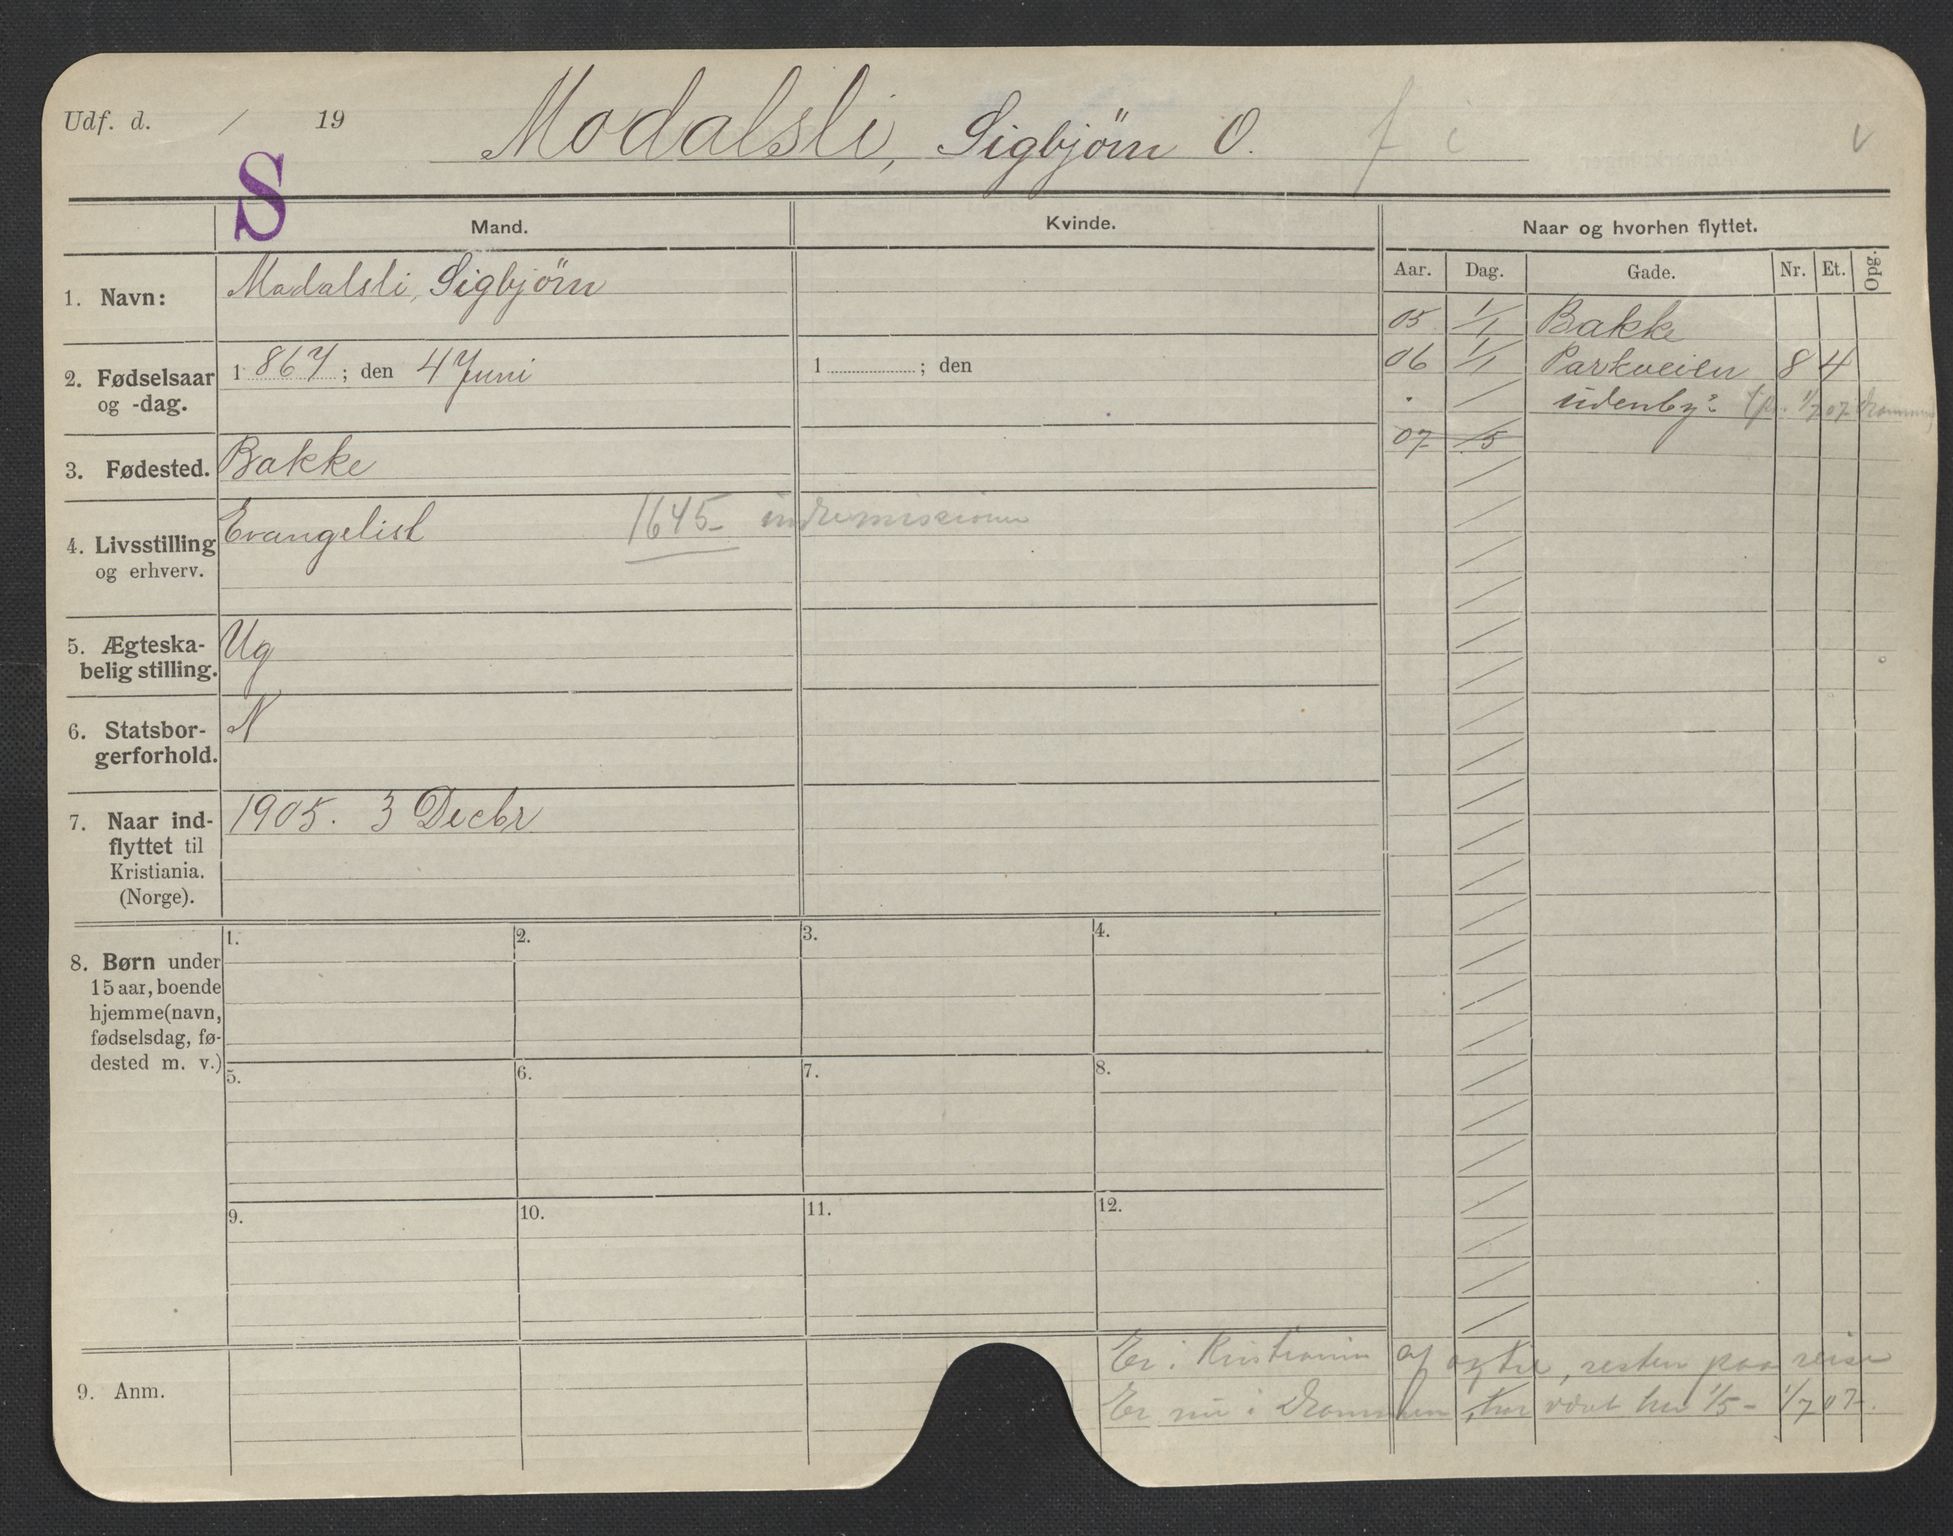 Udf. d. / 19 Modalsli, Sigbjörn O. f i v
S
Mand. Kvinde. Naar og hvorhen flyttet.
Aar. Dag. Gade. Nr. Et. Opg.
1. Navn: Modalsli, Sigbjörn
05 1/1 Bakke
2. Fødselsaar og -dag. 1867; den 4 Juni 1 ; den
06 1/1 Parkveien 8 4
. / udenby? (fr. 1/7 07 Drammen)
07 /5
3. Fødested. Bakke
4. Livsstilling og erhverv. Evangelist 1645- indremissionen
5. Ægteska-
belig stilling. Ug
6. Statsbor-
gerforhold. N
7. Naar ind-
flyttet til
Kristiania.
(Norge).
1905. 3 Decbr
8. Børn under
15 aar, boende
hjemme (navn,
fødselsdag, fø-
dested m. v.)
1. 2. 3. 4.
5. 6. 7. 8.
9. 10. 11. 12.
9. Anm.
Er i Kristiania af og til, resten paa reise
Er nu i Drammen, har været her 1/5 - 1/7 07.